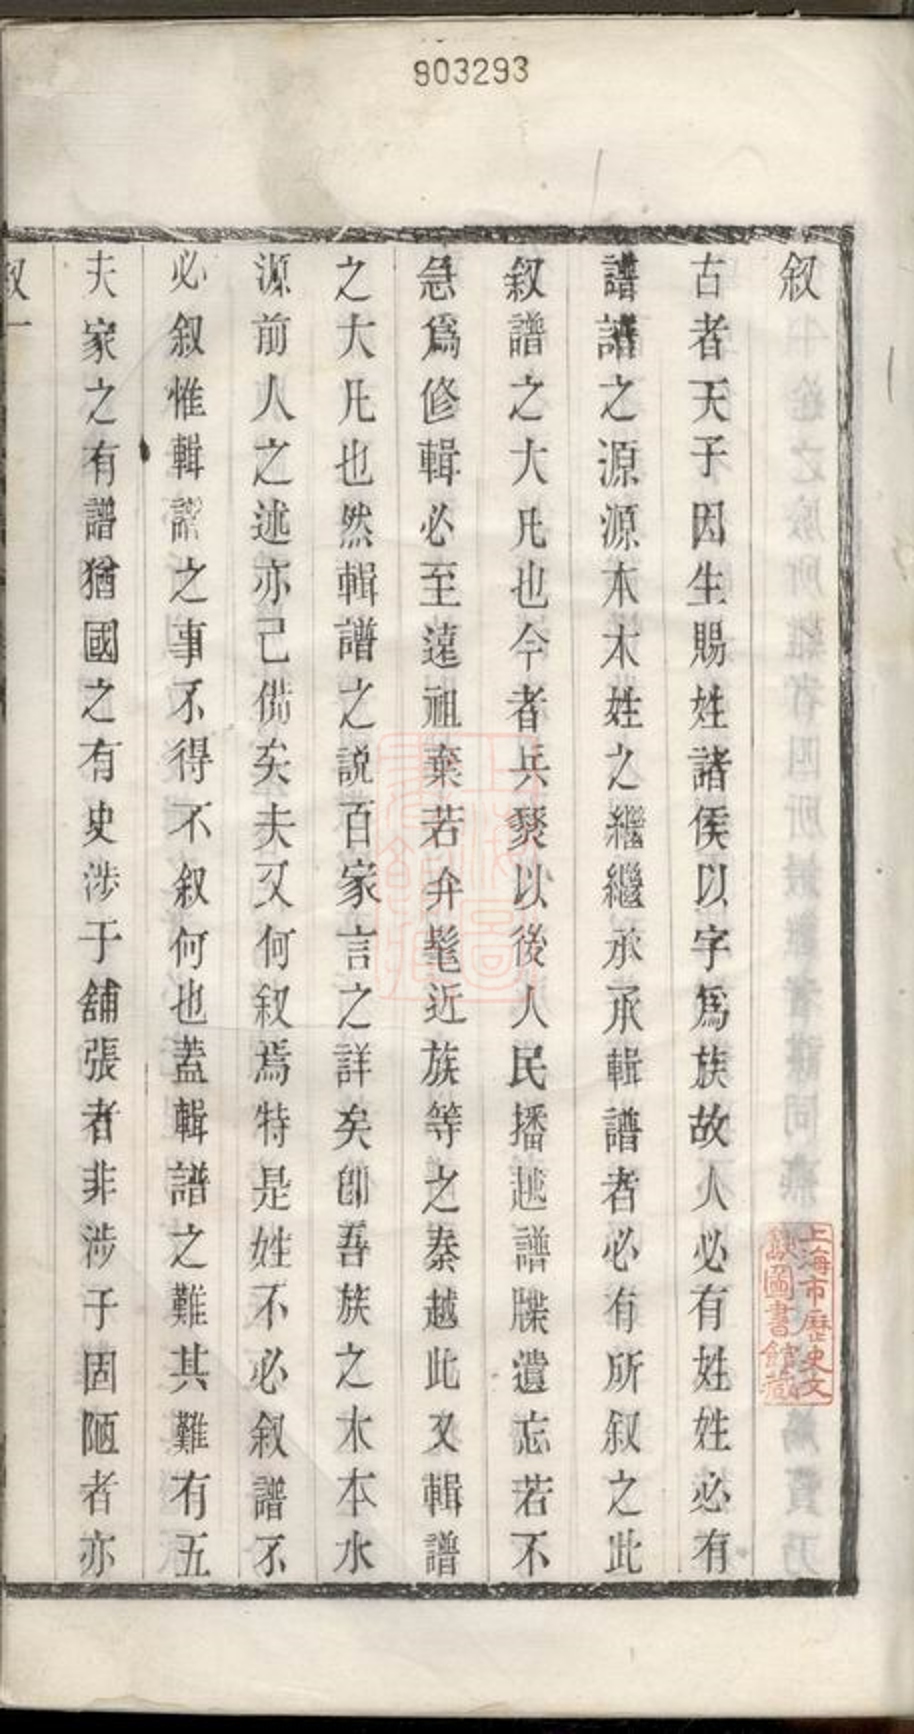 903293
叙
古者天子因生賜姓諸侯以字爲族故人必有姓姓必有
譜譜之源源本木姓之繼繼承承輯譜者必有所叙之此
叙譜之大凡也今者兵燹以後人民播越譜牒遺忘若不
急爲修輯必至遠祖棄若弁髦近族等之秦越此又輯譜
之大凡也然輯譜之説百家言之詳矣卽吾族之木本水
源前人之述亦己備矣夫又何叙焉特是姓不必叙譜不
必叙惟輯譜之事不得不叙何也蓋輯譜之難其難有五
夫家之有譜猶國之有史涉于舖張者非涉于固陋者亦
叙一
上海市歷史文
獻圖書館藏